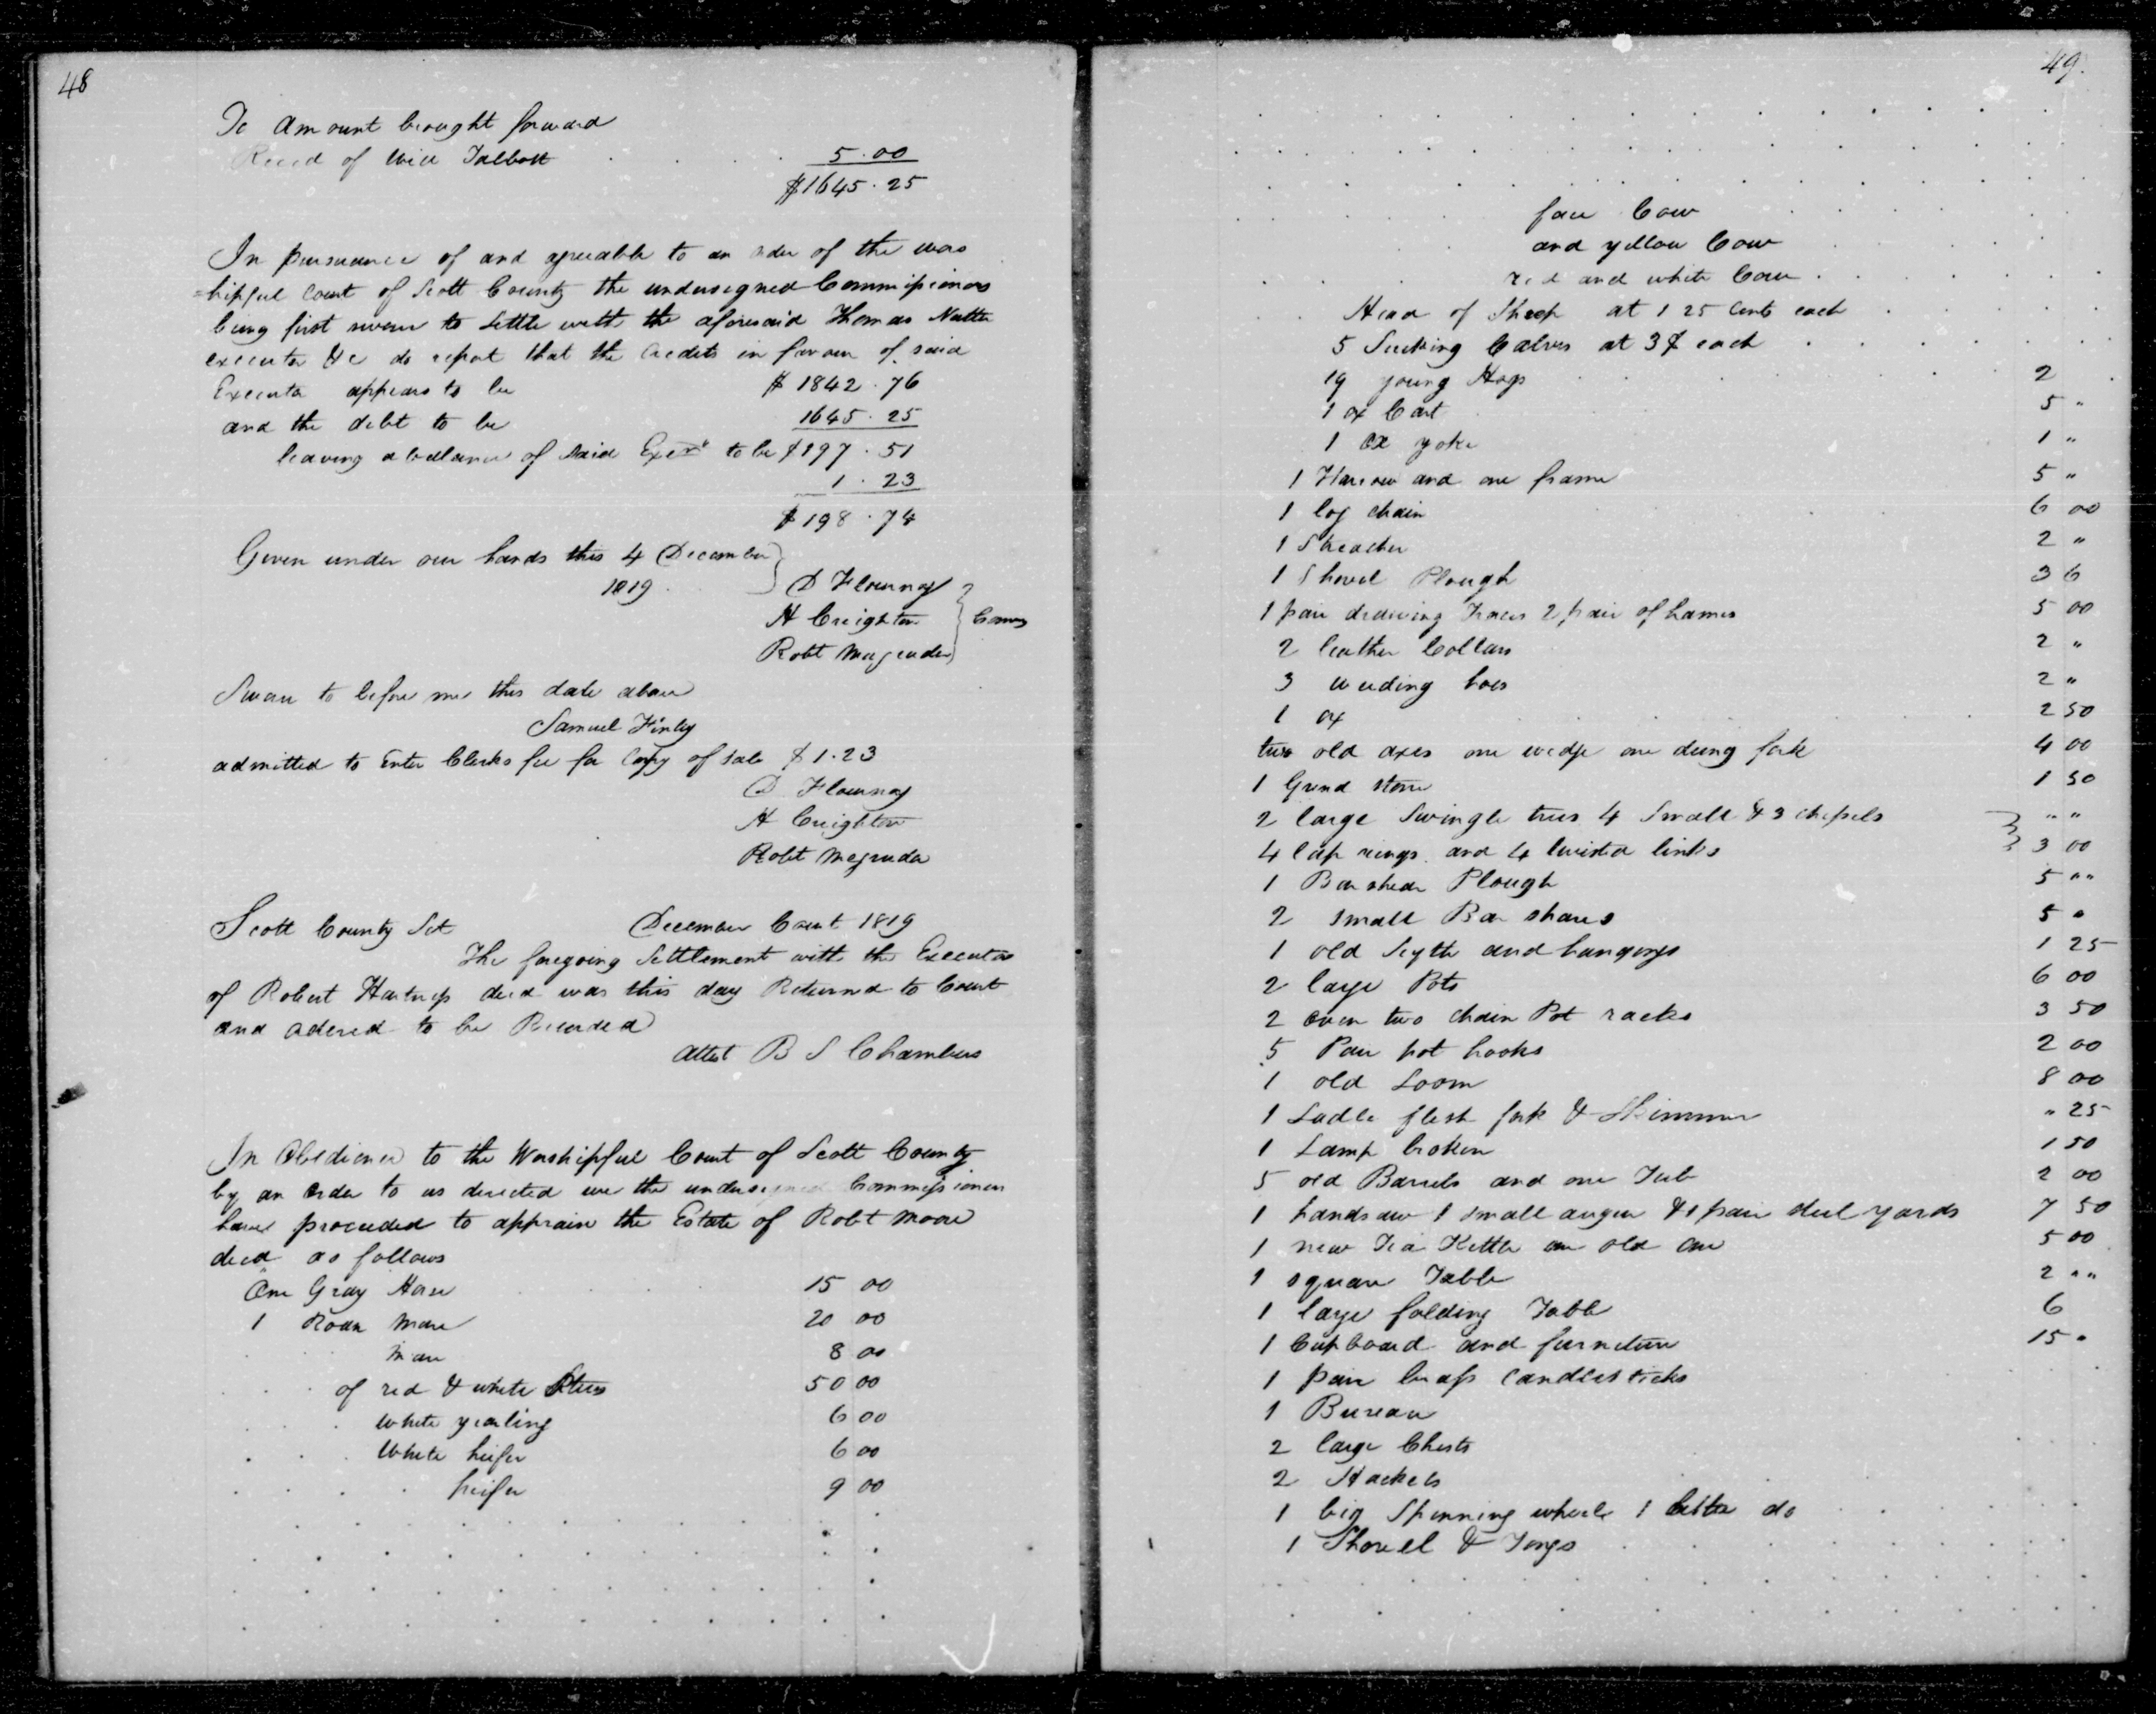 48
To Amount brought forward
Reced of Will Talbott . . . 5.00
$1645.25
In pursuance of and agreeable to an order of the wors
=hipful court of Scott County the undersigned Commissioners
being first sworn to settle with the aforesaid Thomas Nutter
executor &c do report that the credits in favour of said
Executor appears to be $1842.76
and the debt to be 1645.25
leaving a ballance of said Exer to be $197.51
1.23
$198.74
Given under our hands this 4 December
1819
D Flournoy
H Creighton Coms
Robt Magruder
Sworn to before me this date above
Samuel Finley
admitted to Enter Clerks fee for Copy of sale $1.23
D Flournoy
H Creighton
Robt Megruder
Scott County Sct December Court 1819
The foregoing Settlement with the Executor
of Robert Hartness decd was this day Returned to Court
and ordered to be Recorded
attest B S Chambers
In Obedience to the Worshipful Court of Scott County
by an order to us directed we the undersigned Commissioners
have proceeded to apprain the Estate of Robt Moore
decd as follows
One Gray Horse 15 00
1 Roan Mare 20 00
mare 8 00
of red & white Steers 50 00
white yearling 6 00
White heifer 6 00
heifer 9 00
49.
face Cow
and yellow Cow
red and white Cow
Head of Sheep at 1 25 Cents each
5 Sucking Calves at 3$ each
19 young Hogs 2
1 ox Cart 5 "
1 ox yoke 1 "
1 Harrow and one frame 5 "
1 log chain 6 00
1 Streacher 2 "
1 Shovel Plough 3 6
1 pair drawing Traces 2 pair of hames 5 00
2 leather Collars 2 "
3 weeding hoes 2 "
1 ox 2 50
two old axes one wedge one dung fork 4 00
1 Grind stone 1 50
2 large Swingle trees 4 Small & 3 chissels " "
4 lap rings and 4 twisted links 3 00
1 Barshear Plough 5 ""
2 small Bar shares 5 "
1 old Scyth and hangings 1 25
2 large Pots 6 00
2 oven two chain Pot racks 3 50
5 Pair pot hooks 2 00
1 old Loom 8 00
1 Ladle flesh fork & Skimmer " 25
1 Lamp broken 1 50
5 old Barrels and one Tub 2 00
1 handsaw 1 small auger & 1 pair steel yards 7 50
1 new Tea Kettle an old one 5 00
1 square Table 2 ""
1 large folding Table 6
1 Cupboard and furneture 15 "
1 pair brass candlesticks
1 Bureau
2 large Chests
2 Hackels
1 big Spinning wheele 1 little do
1 Shovel & Tongs